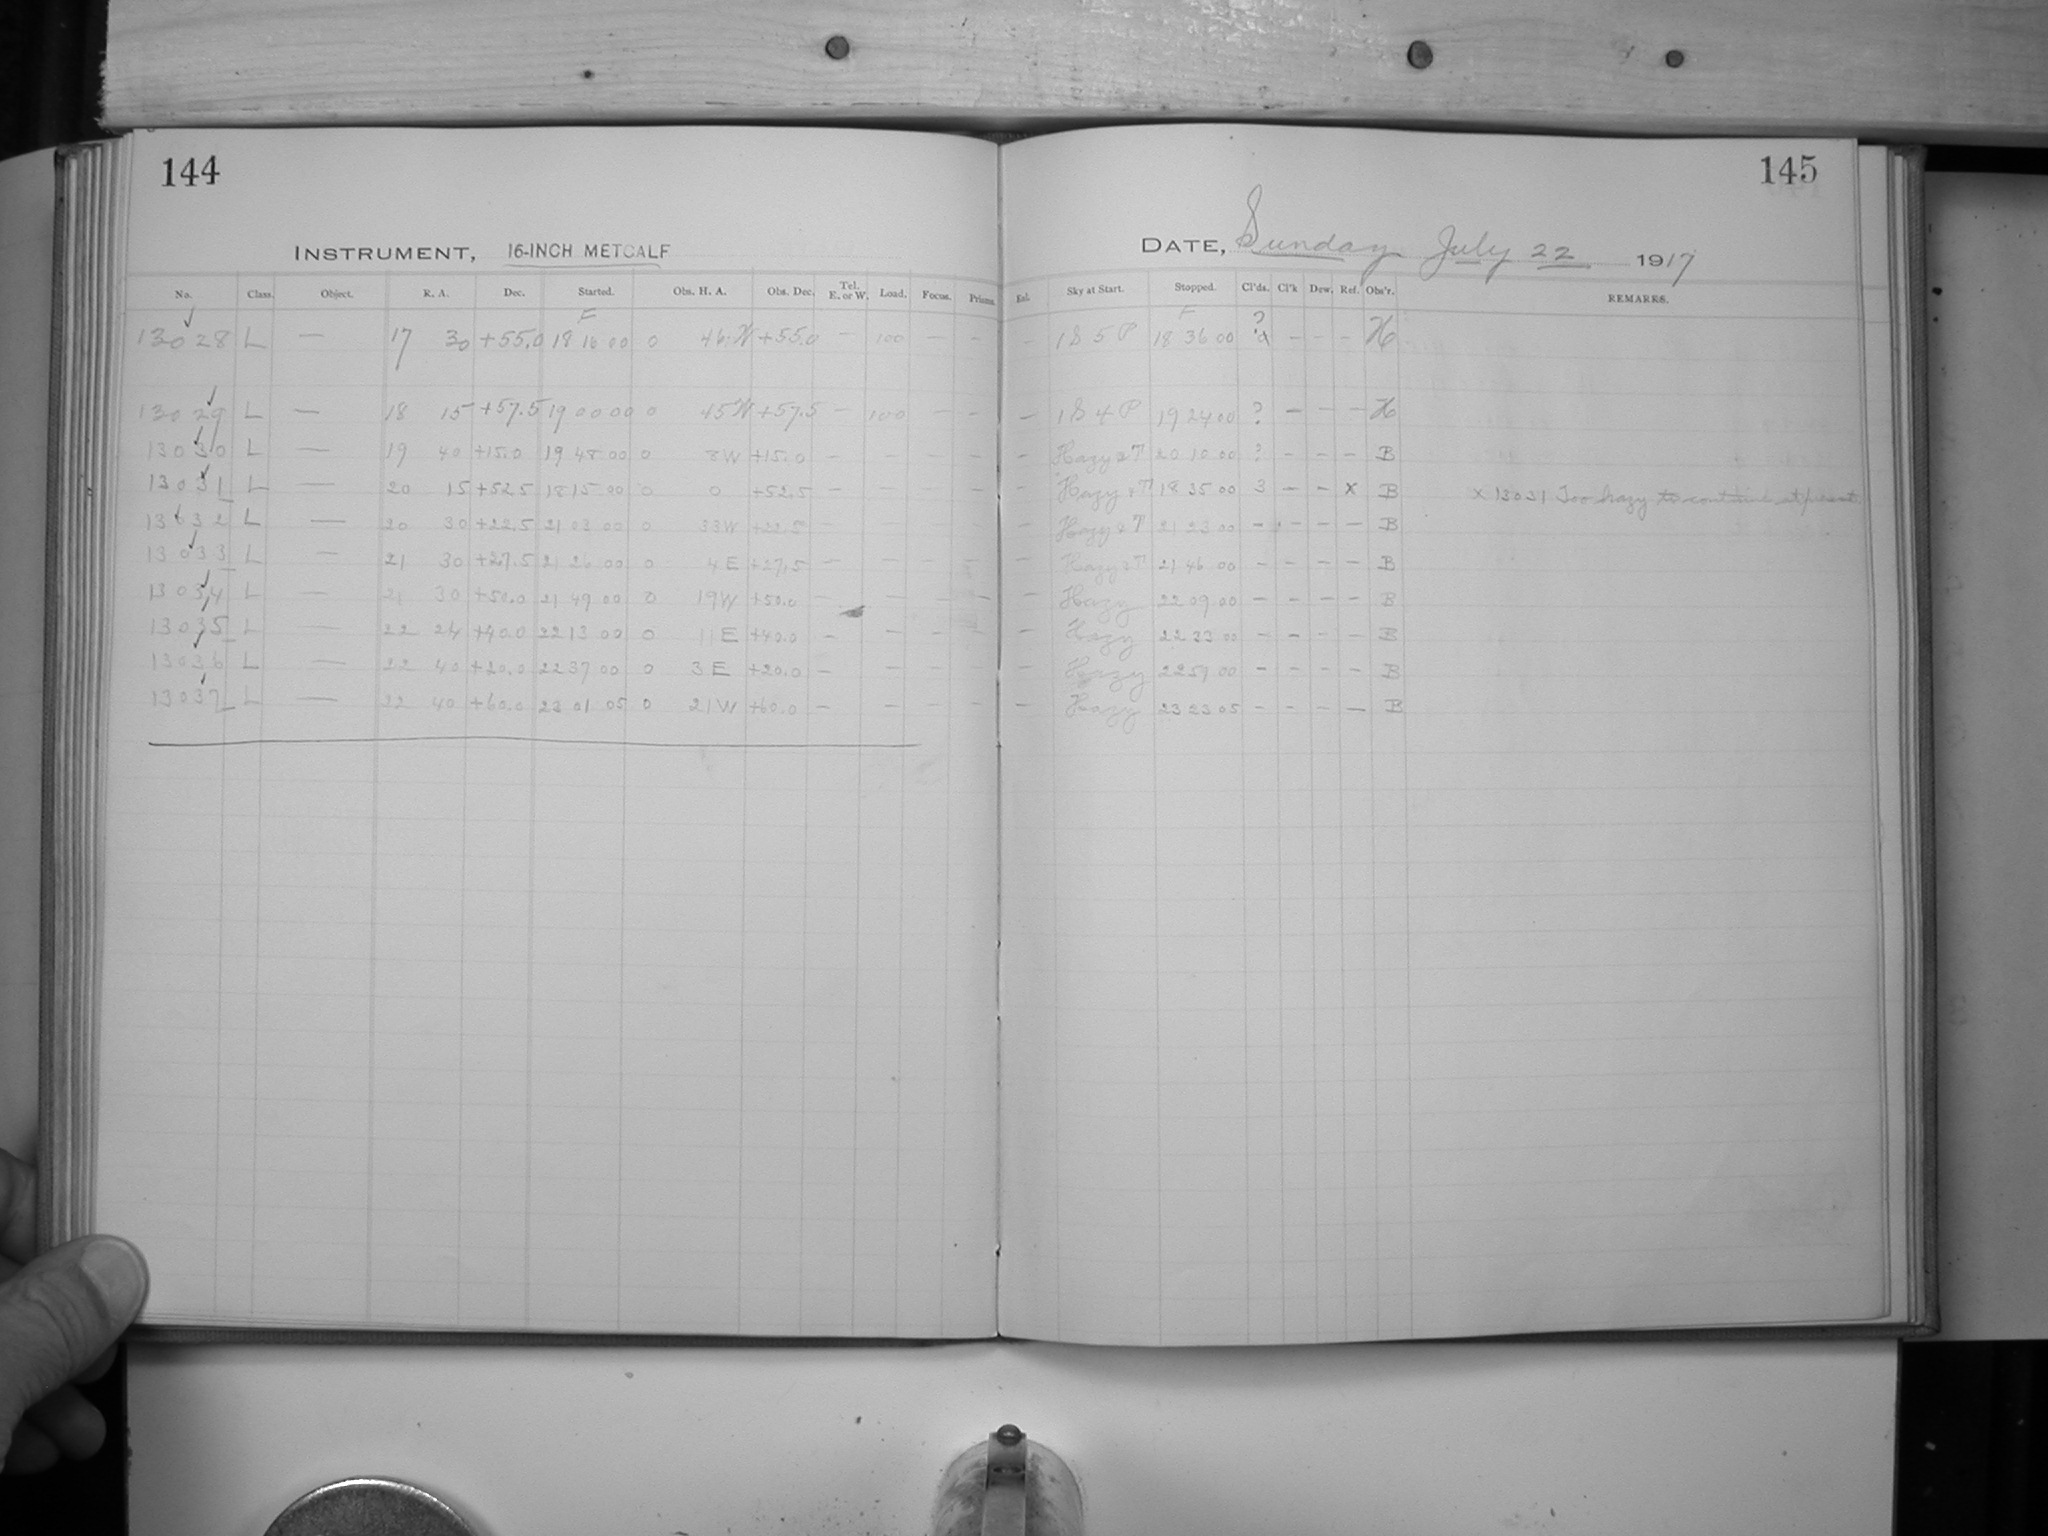 144
145
INSTRUMENT, 16-INCH METCALF
DATE, Sunday July 22 1917
No. Class. Object. R. A. Dec. Started. Obs. H. A. Obs. Dec. Tel. E. or W. Load. Focus. Prisms. Eal. Sky at Start. Stopped. Cl'ds. Cl'k Dew. Ref. Obs'r. REMARKS.
F F ?
13028 L — 17 30 +55.0 18 16 00 0 46 W +55.0 — 100 — — — 1S 5P 18 36 00 — — — H
13029 L — 18 15 +57.5 19 00 00 0 45 W +57.5 — 100 — — — 1S 4P 19 24 00 ? — — — H
13030 L — 19 40 +15.0 19 48 00 0 8 W +15.0 — — — — — Hazy & T 20 10 00 ? — — — B
13031 L — 20 15 +52.5 18 15 00 0 0 +52.5 — — — — — Hazy & T 18 35 00 3 — — x B x 13031 Too hazy to continue at present.
13032 L — 20 30 +22.5 21 03 00 0 33 W +22.5 — — — — — Hazy & T 21 23 00 — — — — B
13033 L — 21 30 +27.5 21 26 00 0 4 E +27.5 — — — — — Hazy & T 21 46 00 — — — — B
13034 L — 21 30 +50.0 21 49 00 0 19 W +50.0 — — — — — Hazy 22 09 00 — — — — B
13035 L — 22 24 +40.0 22 13 00 0 11 E +40.0 — — — — — Hazy 22 33 00 — — — — B
13036 L — 22 40 +20.0 22 37 00 0 3 E +20.0 — — — — — Hazy 22 59 00 — — — — B
13037 L — 22 40 +60.0 23 01 05 0 21 W +60.0 — — — — — Hazy 23 23 05 — — — — B